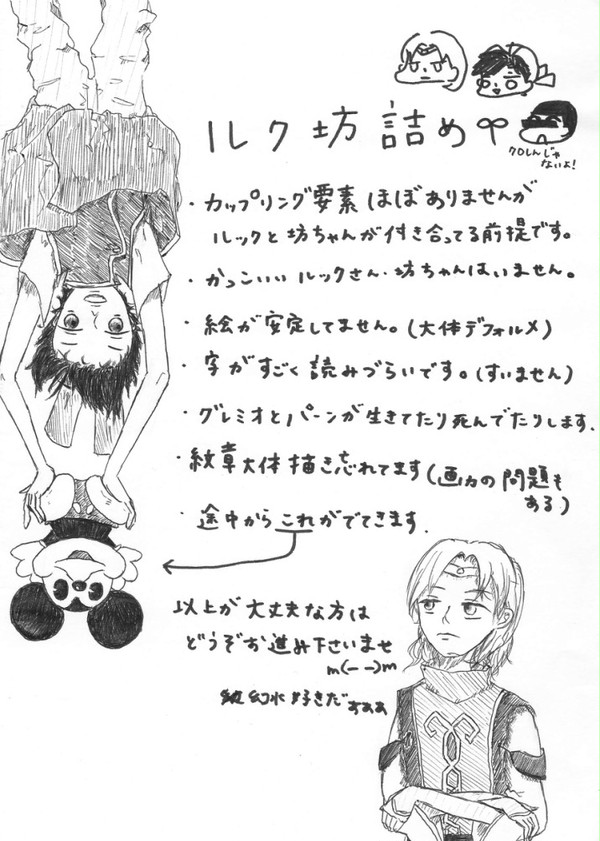 ルク坊詰め
クロしんじゃ
ないよ!
・カップリング要素ほぼありませんが
ルックと坊ちゃんが付き合ってる前提です。
・かっこいいルックさん・坊ちゃんはいません。
・絵が安定してません。(大体デフォルメ)
・字がすごく読みづらいです。(すいません)
・グレミオとパーンが生きてたり死んでたりします.
・紋章大体描き忘れてます(画力の問題も
ある)
・途中からこれがでてきます.
以上が大丈夫な方は
どうぞお進み下さいませ
m(--)m
幻水好きだぁぁぁ